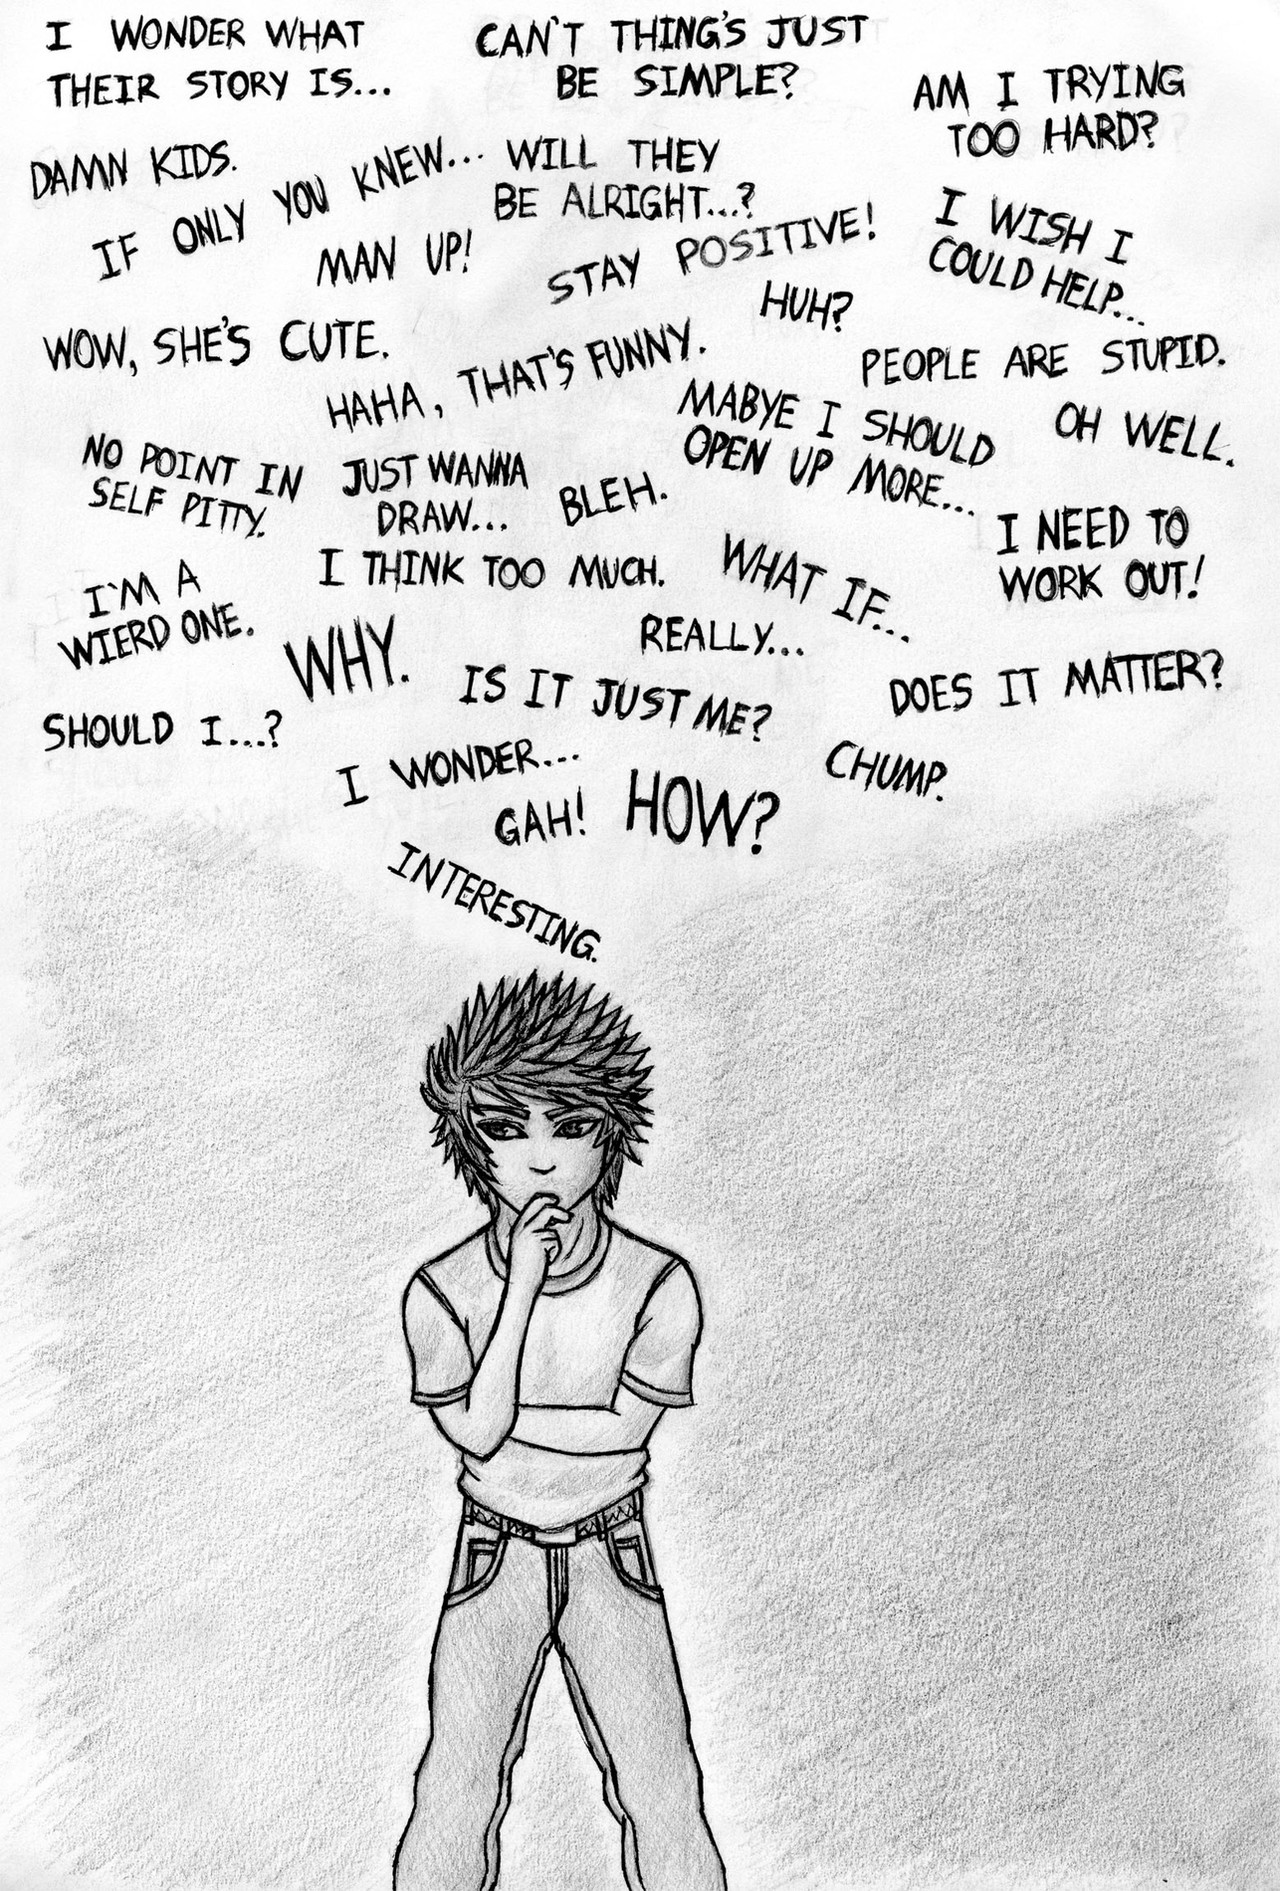 I WONDER WHAT
THEIR STORY IS...
CAN'T THING'S JUST
BE SIMPLE?
AM I TRYING
TOO HARD?
DAMN KIDS.
IF ONLY YOU KNEW...
WILL THEY
BE ALRIGHT...?
MAN UP!
STAY POSITIVE!
I WISH I
COULD HELP...
HUH?
WOW, SHE'S CUTE.
HAHA, THAT'S FUNNY.
PEOPLE ARE STUPID.
MABYE I SHOULD
OPEN UP MORE...
OH WELL.
NO POINT IN
SELF PITTY.
JUST WANNA
DRAW...
BLEH.
I NEED TO
WORK OUT!
I THINK TOO MUCH.
WHAT IF...
I'M A
WIERD ONE.
WHY.
REALLY...
IS IT JUST ME?
DOES IT MATTER?
SHOULD I...?
I WONDER...
CHUMP.
GAH!
HOW?
INTERESTING.